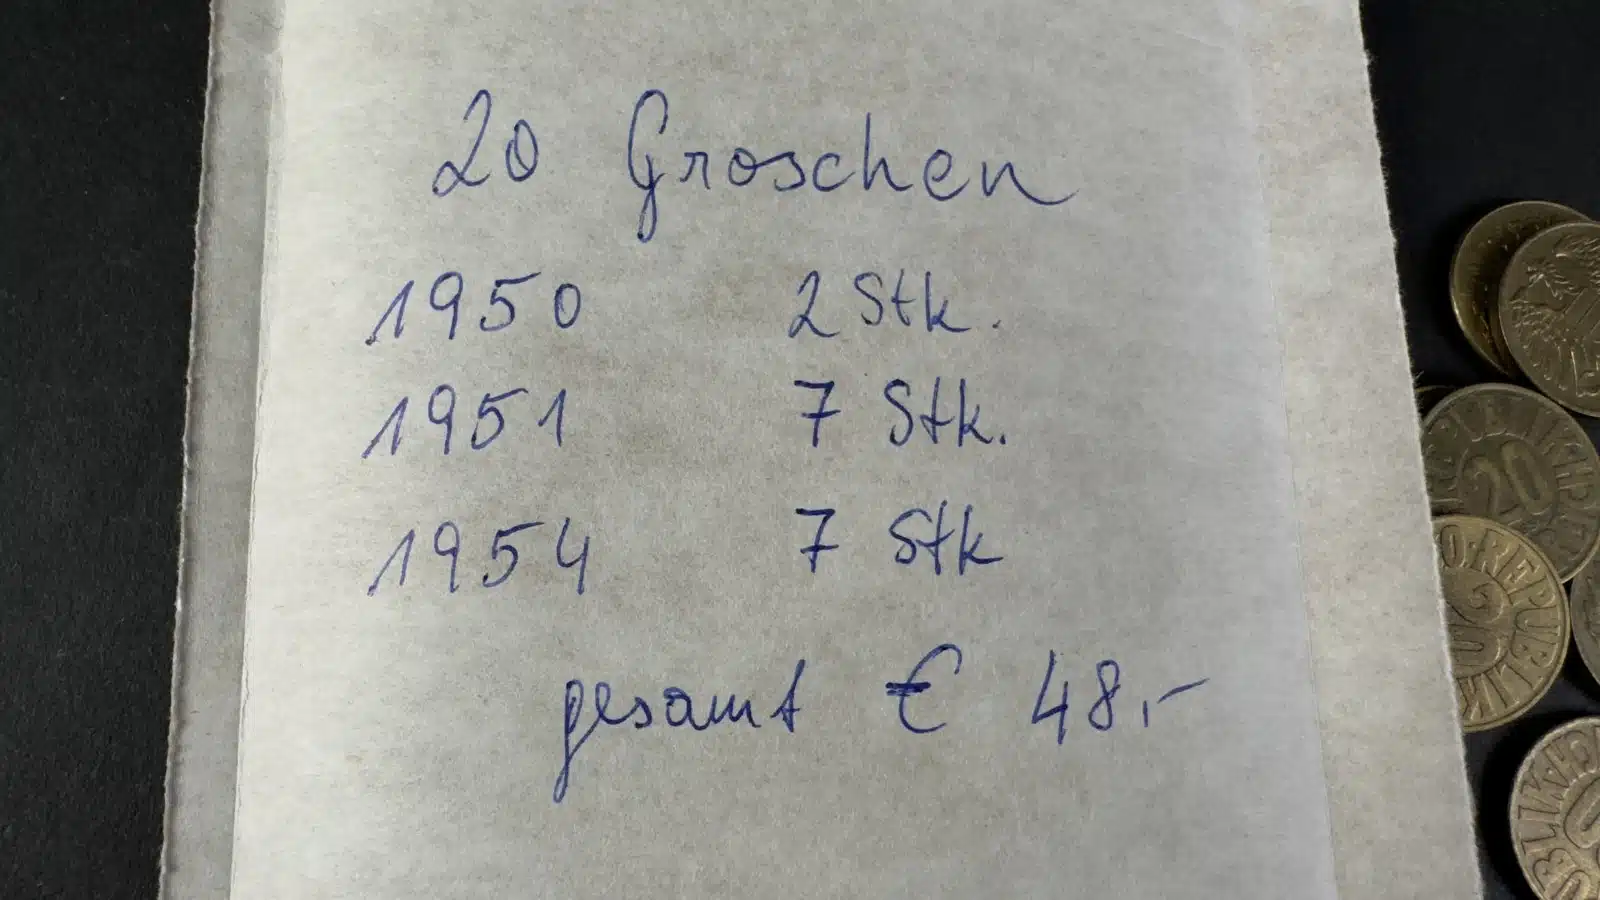 20 Groschen
1950 2 Stk.
1951 7 Stk.
1954 7 Stk
gesamt € 48,-
REPUBLIK
20